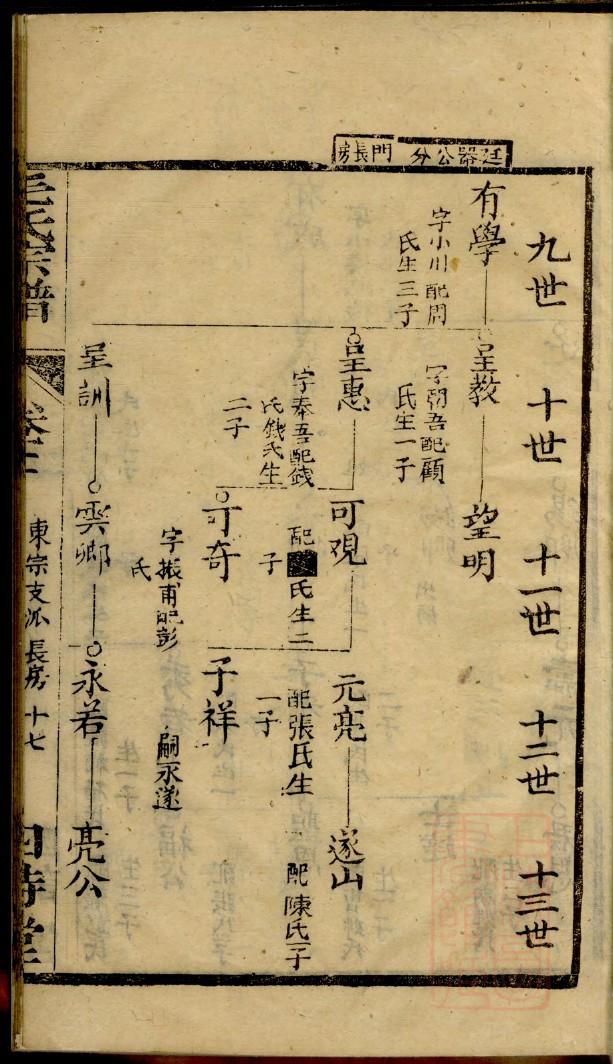 廷器公分　門長房
九世
十世
十一世
十二世
十三世
有學
字小川配周
氏生三子
呈教
字朝吾配顧
氏生一子
望明
呈惠
字奉吾配錢
氏錢氏生
二子
可觀
配
氏生二
子
元亮
配張氏生
一子
遂山
配陳氏一子
可奇
字振甫配彭
氏
子祥
嗣永遂
呈訓
雲卿
永若
亮公
氏宗譜
東宗支派長房十七